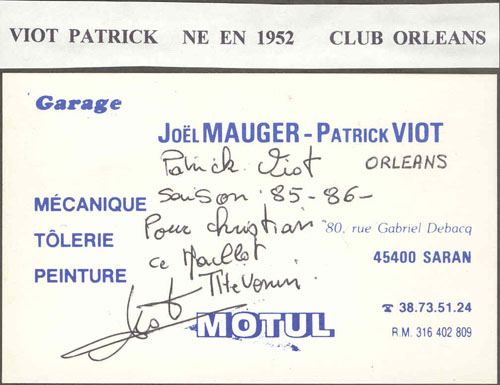 VIOT PATRICK NE EN 1952 CLUB ORLEANS
Garage
JOËL MAUGER - PATRICK VIOT
Patrick Viot ORLEANS
MÉCANIQUE
Saison 85-86-
TÔLERIE
Pour Christian
80, rue Gabriel Debacq
PEINTURE
ce Maillot
45400 SARAN
Viot
MOTUL
☎ 38.73.51.24
R.M. 316 402 809